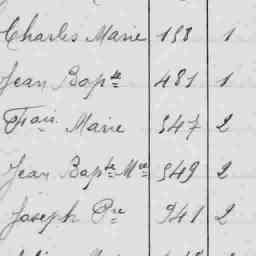 Charles Marie 158 1
Jean Bapte 481 1
Fran. Marie 547 2
Jean Bapte Mie 549 2
Joseph Pre 941 2